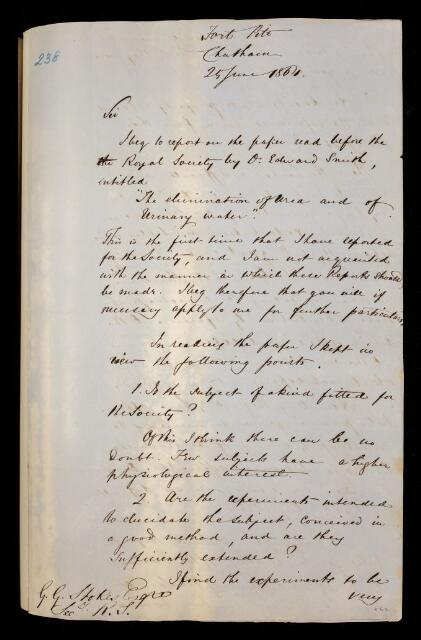 238
Fort Pitt
Chatham
25 June 1860.
Sir
I beg to report on the paper read before the
the Royal Society by Dr. Edward Smith,
intitled
"The elimination of Urea and of
Urinary water".
This is the first time that I have reported
for the Society, and I am not acquainted
with the manner in which these Reports should
be made. I beg therefore that you will if
necessary apply to me for further particulars.
In reading the paper I kept in
view the following points.
1. Is the subject of a kind fitted for
the Society?
Of this I think there can be no
doubt. Few subjects have a higher
physiological interest.
2 Are the experiments intended
to elucidate the subject, conceived in
a good method, and are they
sufficiently extended?
I find the experiments to be
very
G. G. Stokes Esqre
Secy. R. S.